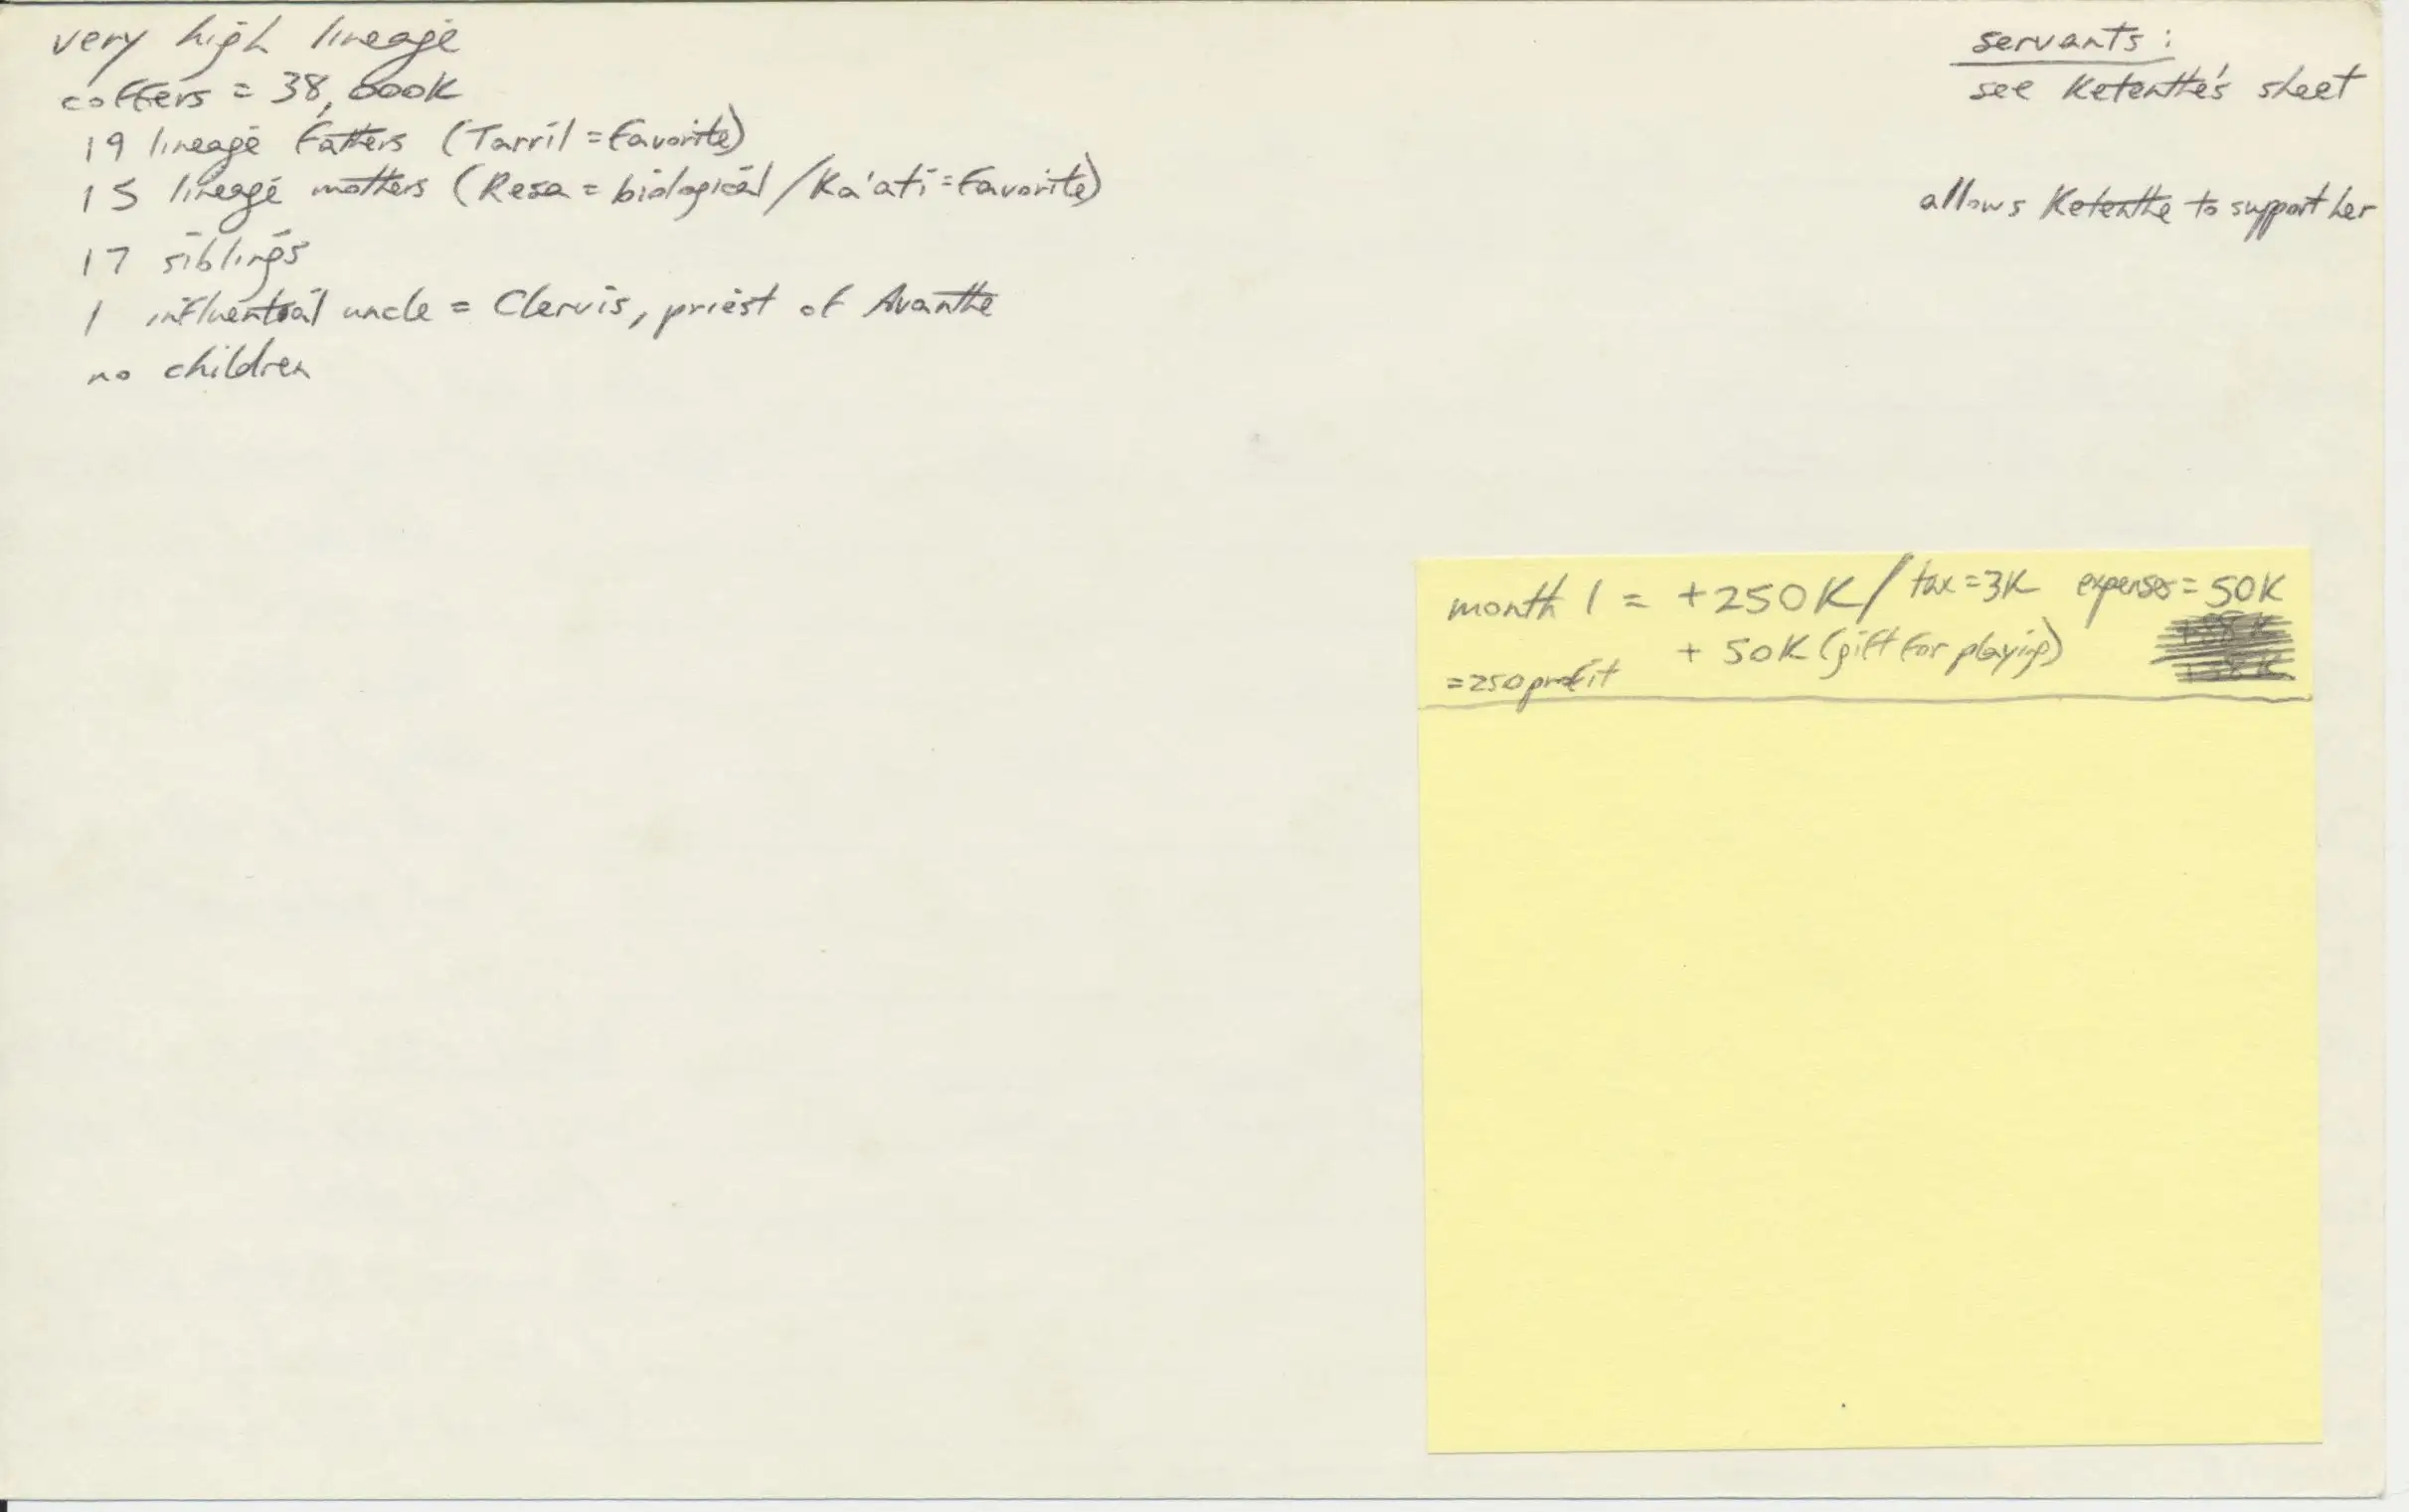 very high lineage
coffers = 38,000K
19 lineage fathers (Tarril = favorite)
15 lineage mothers (Resa = biological / Ka'ati = favorite)
17 siblings
1 influential uncle = Clervis, priest of Avanthe
no children
servants:
see Ketenthe's sheet
allows Ketenthe to support her
month 1 = +250K / tax = 3K expenses = 50K
+ 50K (gift for playing)
= 250 profit